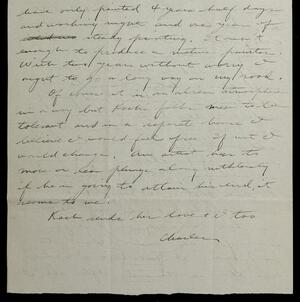 have only painted 4 years half days
and working nights and one year of
steady painting. It isn't
enough to produce a mature painter.
With two years without worry I
ought to go a long way on my road.
Of course it is an atmosphere
in a way but folks have to be
tolerant and in a separate house I
believe I would feel free. If not I
would change. An artist has to
more or less plunge along ruthlessly
if he is going to attain his end, it
seems to me.
sends her love & I too
Charles